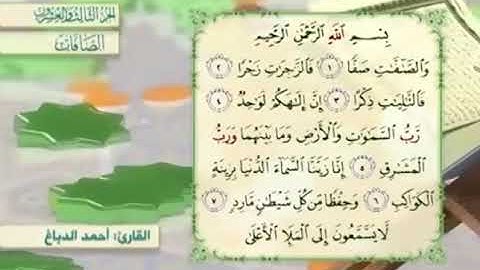 الجزء الثالث والعشرون
الصافات
بِسْمِ ٱللَّهِ ٱلرَّحْمَٰنِ ٱلرَّحِيمِ
وَٱلصَّٰٓفَّٰتِ صَفًّا ١ فَٱلزَّٰجِرَٰتِ زَجْرًا ٢
فَٱلتَّٰلِيَٰتِ ذِكْرًا ٣ إِنَّ إِلَٰهَكُمْ لَوَٰحِدٌ ٤
رَّبُّ ٱلسَّمَٰوَٰتِ وَٱلْأَرْضِ وَمَا بَيْنَهُمَا وَرَبُّ
ٱلْمَشَٰرِقِ ٥ إِنَّا زَيَّنَّا ٱلسَّمَآءَ ٱلدُّنْيَا بِزِينَةٍ
ٱلْكَوَاكِبِ ٦ وَحِفْظًا مِّن كُلِّ شَيْطَٰنٍ مَّارِدٍ ٧
لَّا يَسَّمَّعُونَ إِلَى ٱلْمَلَإِ ٱلْأَعْلَىٰ
القارئ: أحمد الدباغ